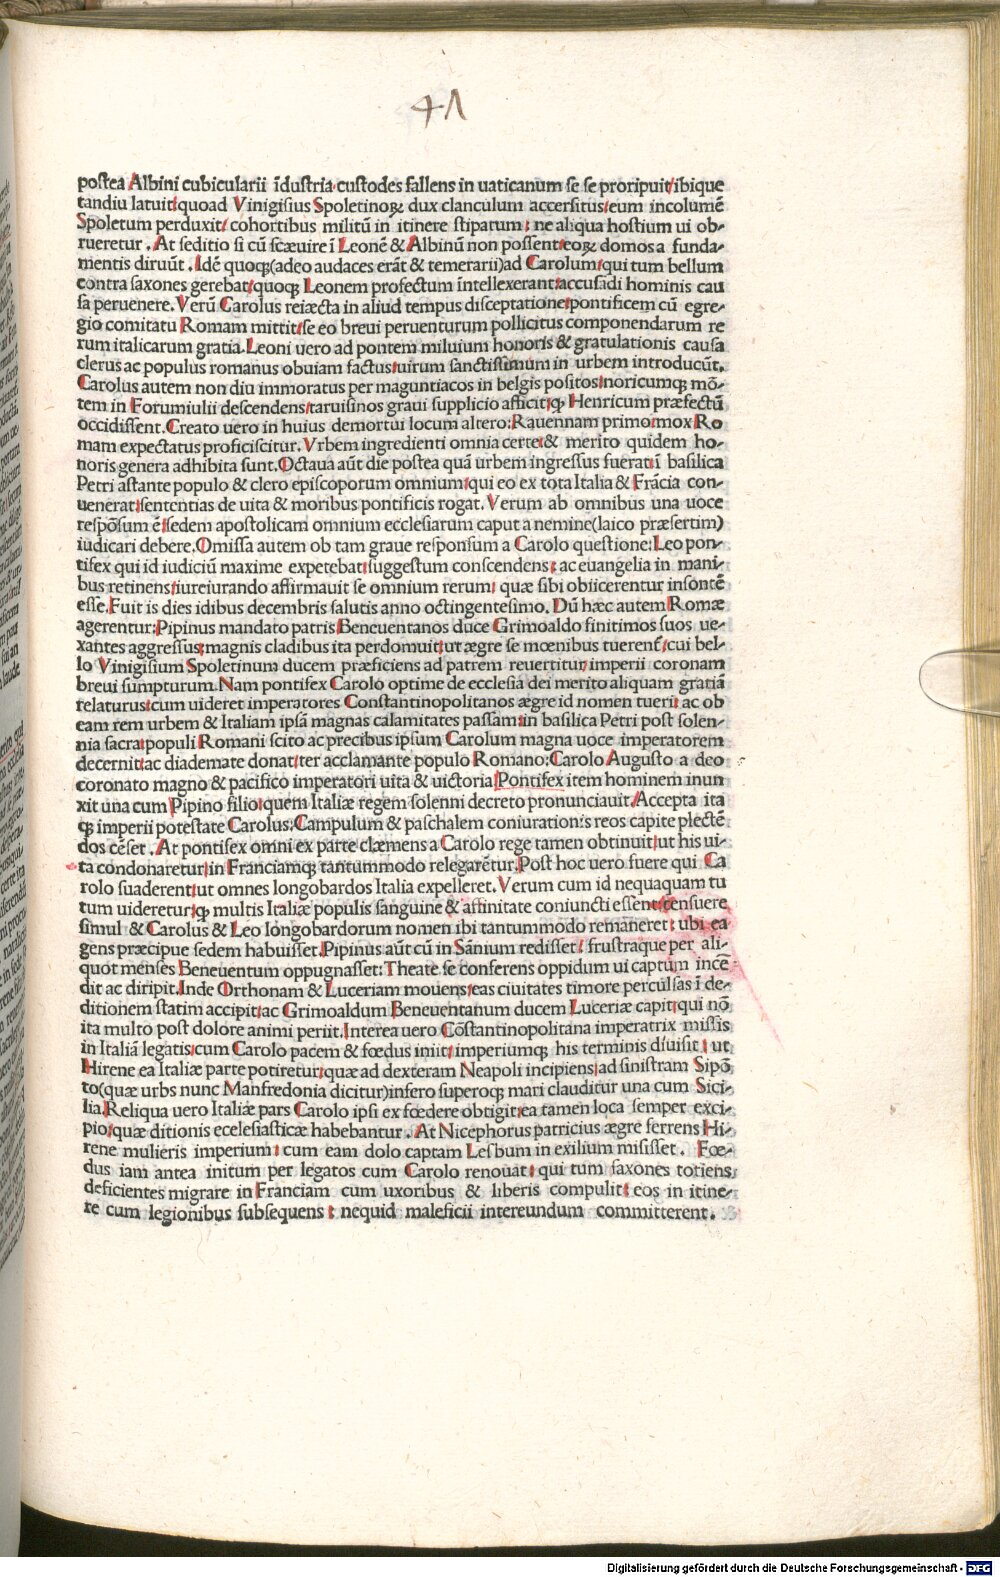 41
postea Albini cubicularii īdustria custodes fallens in uaticanum se se proripuit/ibique
tandiu latuit/quoad Vinigisius Spoletinoꝝ dux clanculum accersitus/eum incolumē
Spoletum perduxit/ cohortibus militū in itinere stipatum: ne aliqua hostium ui ob-
rueretur. At seditiosi cū scæuire ī Leonē & Albinū non possent/eoꝝ domos a funda-
mentis diruūt. Idē quoqꝫ(adeo audaces erāt & temerarii)ad Carolum/qui tum bellum
contra saxones gerebat/quoqꝫ Leonem profectum intellexerant/accusādi hominis cau
sa peruenere. Verū Carolus reiæcta in aliud tempus disceptatione/pontificem cū egre-
gio comitatu Romam mittit/se eo breui peruenturum pollicitus componendarum re
rum italicarum gratia. Leoni uero ad pontem miluium honoris & gratulationis causa
clerus ac populus romanus obuiam factus/uirum sanctissimum in urbem introducūt.
Carolus autem non diu immoratus per maguntiacos in belgis positos/noricumqꝫ mō-
tem in Forumiulii descendens/taruisinos graui supplicio afficit/qꝫ Henricum præfectū
occidissent. Creato uero in huius demortui locum altero: Rauennam primo/mox Ro
mam expectatus proficiscitur. Vrbem ingredienti omnia certe/& merito quidem ho-
noris genera adhibita sunt. Octaua aūt die postea quā urbem ingressus fuerat/ī basilica
Petri astante populo & clero episcoporum omnium/qui eo ex tota Italia & Frācia con-
uenerat/sententias de uita & moribus pontificis rogat. Verum ab omnibus una uoce
respōsum ē/sedem apostolicam omnium ecclesiarum caput a nemine(laico præsertim)
iudicari debere. Omissa autem ob tam graue responsum a Carolo questione: Leo pon-
tifex qui id iudiciū maxime expetebat/suggestum conscendens: ac euangelia in mani-
bus retinens/iureiurando affirmauit se omnium rerum/ quæ sibi obiicerentur insontē
esse. Fuit is dies idibus decembris salutis anno octingentesimo. Dū hæc autem Romæ
agerentur: Pipinus mandato patris Beneuentanos duce Grimoaldo finitimos suos ue-
xantes aggressus/magnis cladibus ita perdomuit/ut ægre se mœnibus tuerent̃/cui bel-
lo Vinigisium Spoletinum ducem præficiens ad patrem reuertitur/imperii coronam
breui sumpturum. Nam pontifex Carolo optime de ecclesia dei merito aliquam gratiā
relaturus/cum uideret imperatores Constantinopolitanos ægre id nomen tueri: ac ob
eam rem urbem & Italiam ipsā magnas calamitates passam/in basilica Petri post solen-
nia sacra/populi Romani scito ac precibus ipsum Carolum magna uoce imperatorem
decernit/ac diademate donat/ter acclamante populo Romano: Carolo Augusto a deo
coronato magno & pacifico imperatori uita & uictoria/Pontifex item hominem inun
xit una cum Pipino filio/quem Italiæ regem solenni decreto pronunciauit. Accepta ita
qꝫ imperii potestate Carolus: Campulum & paschalem coniurationis reos capite plectē
dos cēset. At pontifex omni ex parte clæmens a Carolo rege tamen obtinuit/ut his ui-
ta condonaretur/in Franciamqꝫ tantummodo relegarētur. Post hoc uero fuere qui Ca
rolo suaderent/ut omnes longobardos Italia expelleret. Verum cum id nequaquam tu
tum uideretur/qꝫ multis Italiæ populis sanguine & affinitate coniuncti essent/censuere
simul & Carolus & Leo longobardorum nomen ibi tantummodo remaneret: ubi ea
gens præcipue sedem habuisset. Pipinus aūt cū in Sānium redisset/ frustraque per ali-
quot menses Beneuentum oppugnasset: Theate se conferens oppidum ui captum incē
dit ac diripit. Inde Orthonam & Luceriam mouens/eas ciuitates timore perculsas ī de-
ditionem statim accipit/ac Grimoaldum Beneuentanum ducem Luceriæ capit/qui nō
ita multo post dolore animi periit. Interea uero Cōstantinopolitana imperatrix missis
in Italiā legatis/cum Carolo pacem & fœdus iniit/imperiumqꝫ his terminis diuisit: ut
Hirene ea Italiæ parte potiretur/quæ ad dexteram Neapoli incipiens/ad sinistram Sipō
to(quæ urbs nunc Manfredonia dicitur)infero superoqꝫ mari clauditur una cum Sici-
lia. Reliqua uero Italiæ pars Carolo ipsi ex fœdere obtigit/ea tamen loca semper exci-
pio/quæ ditionis ecclesiasticæ habebantur. At Nicephorus patricius ægre ferrens Hi-
rene mulieris imperium: cum eam dolo captam Lesbum in exilium misisset. Fœ-
dus iam antea initum per legatos cum Carolo renouat: qui tum saxones totiens
deficientes migrare in Franciam cum uxoribus & liberis compulit: eos in itine-
re cum legionibus subsequens: nequid maleficii intereundum committerent.
Digitalisierung gefördert durch die Deutsche Forschungsgemeinschaft - DFG